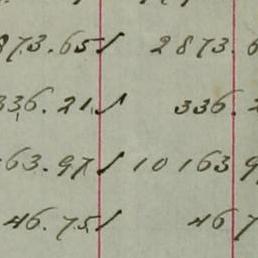 873.65 / 2873.6
336.21 / 336.2
63.97 / 10163 9
46.75 / 46 7